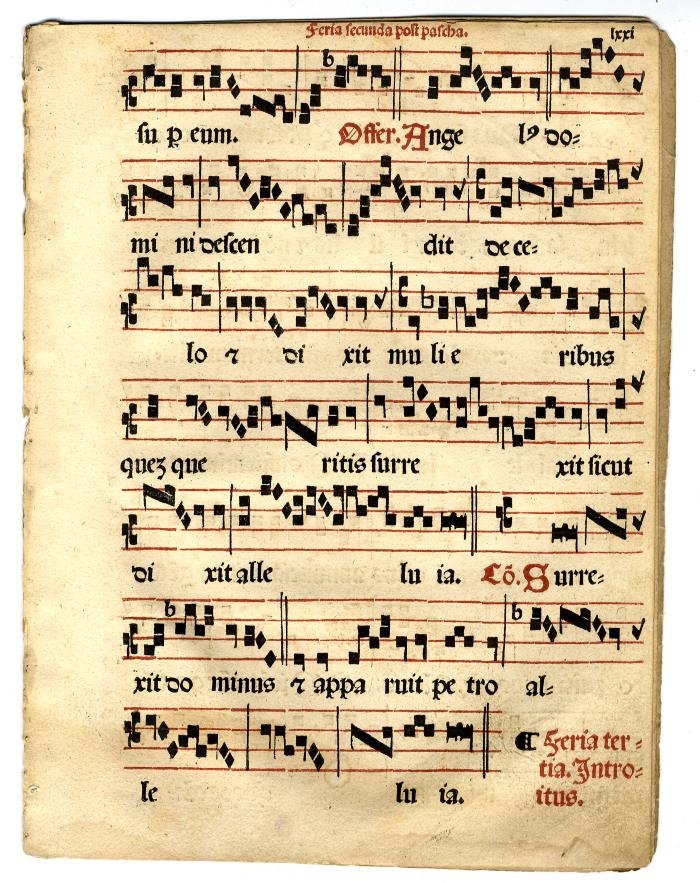 Feria secunda post pascha. lxxi
su ꝑ eum. Offer. Ange lꝰ do-
mi ni descen dit de ce-
lo ⁊ di xit mu li e ribus
queʒ que ritis surre xit sicut
di xit alle lu ia. Cõ. Surre-
xit do minus ⁊ appa ruit pe tro al-
le lu ia. ¶ Feria ter-
tia. Intro-
itus.